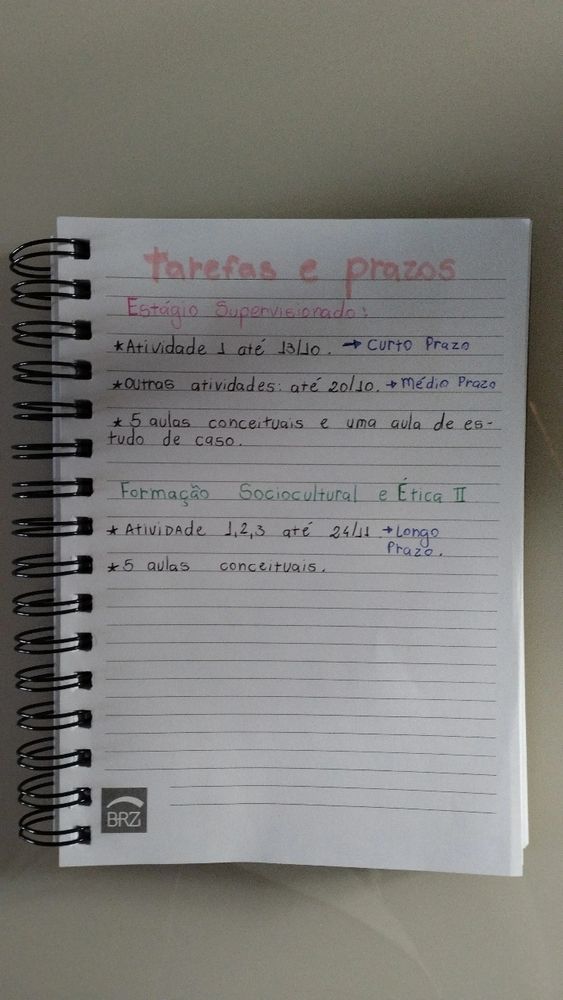 tarefas e prazos
Estágio Supervisionado:
* Atividade 1 até 13/10. → Curto Prazo
* Outras atividades: até 20/10. → Médio Prazo
* 5 aulas conceituais e uma aula de es-
tudo de caso.
Formação Sociocultural e Ética II
* Atividade 1,2,3 até 24/11 → Longo
Prazo.
* 5 aulas conceituais.
BRZ